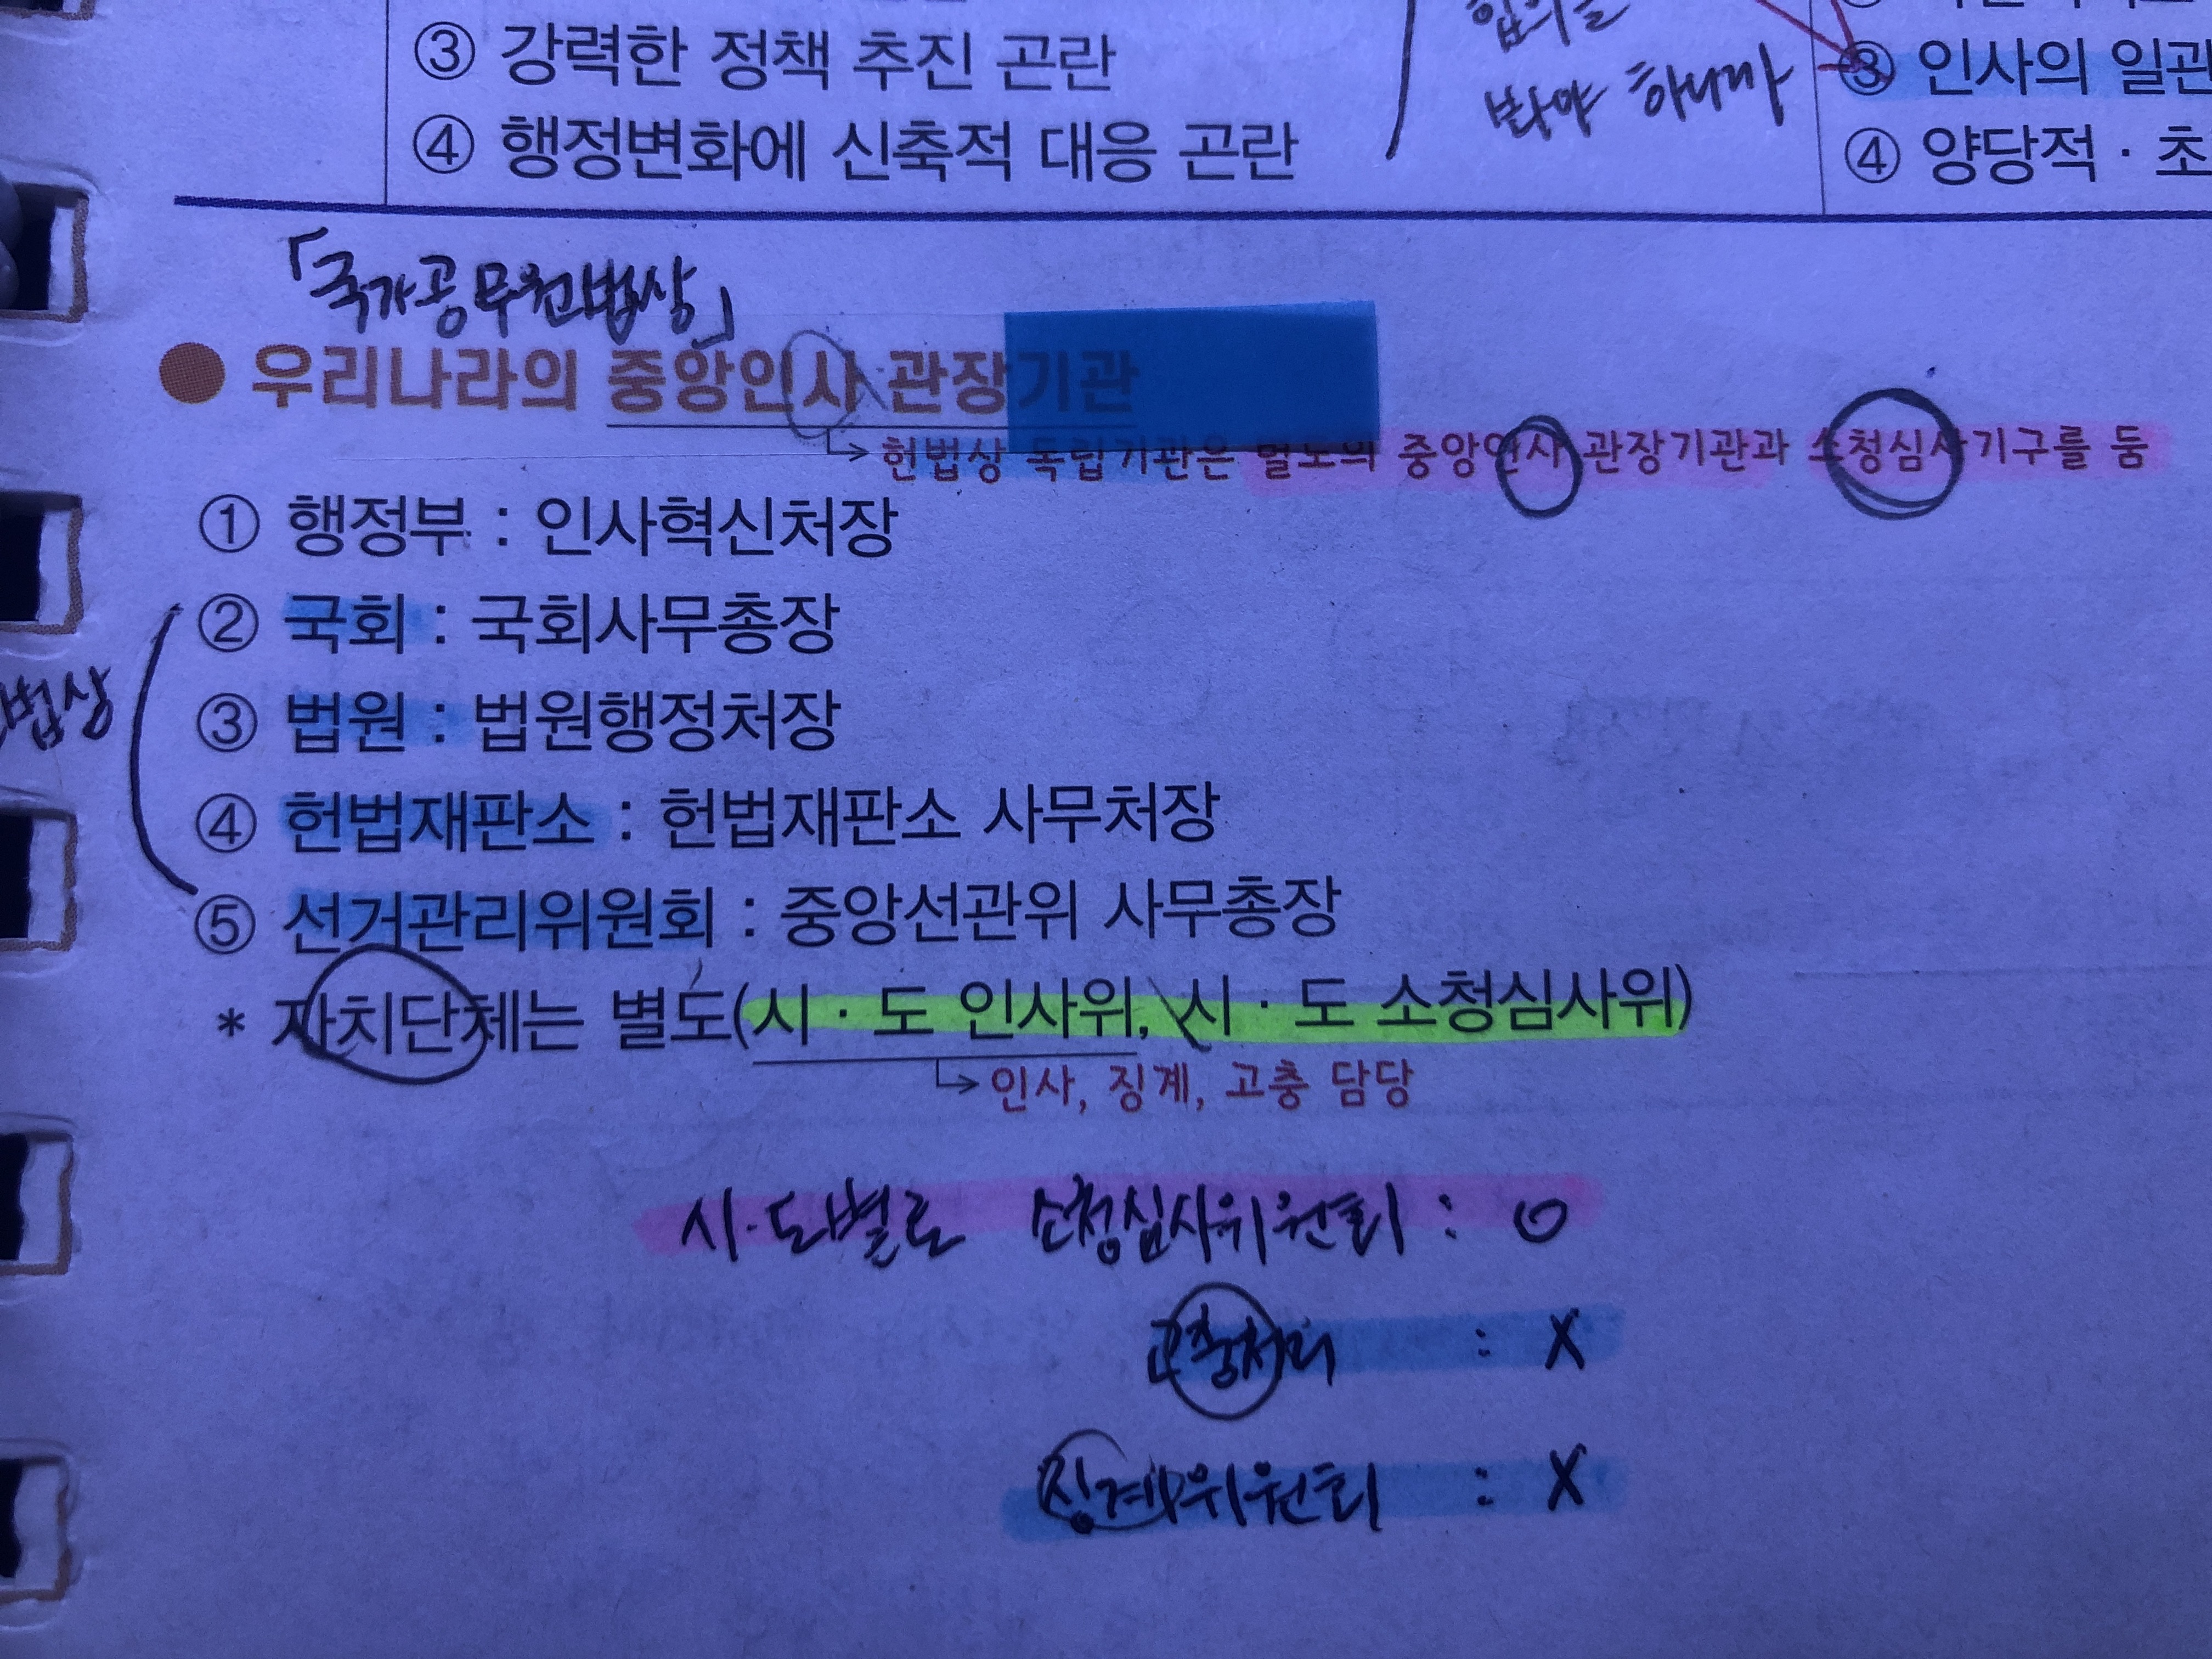 ③ 강력한 정책 추진 곤란
④ 행정변화에 신축적 대응 곤란
합의를
봐야 하니까
③ 인사의 일관
④ 양당적 · 초
「국가공무원법상」
● 우리나라의 중앙인사 관장기관
→ 헌법상 독립기관은 별도의 중앙인사 관장기관과 소청심사기구를 둠
① 행정부 : 인사혁신처장
② 국회 : 국회사무총장
③ 법원 : 법원행정처장
④ 헌법재판소 : 헌법재판소 사무처장
⑤ 선거관리위원회 : 중앙선관위 사무총장
법상
* 자치단체는 별도(시 · 도 인사위, 시 · 도 소청심사위)
→ 인사, 징계, 고충 담당
시·도별로 소청심사위원회 : O
고충처리 : X
징계위원회 : X